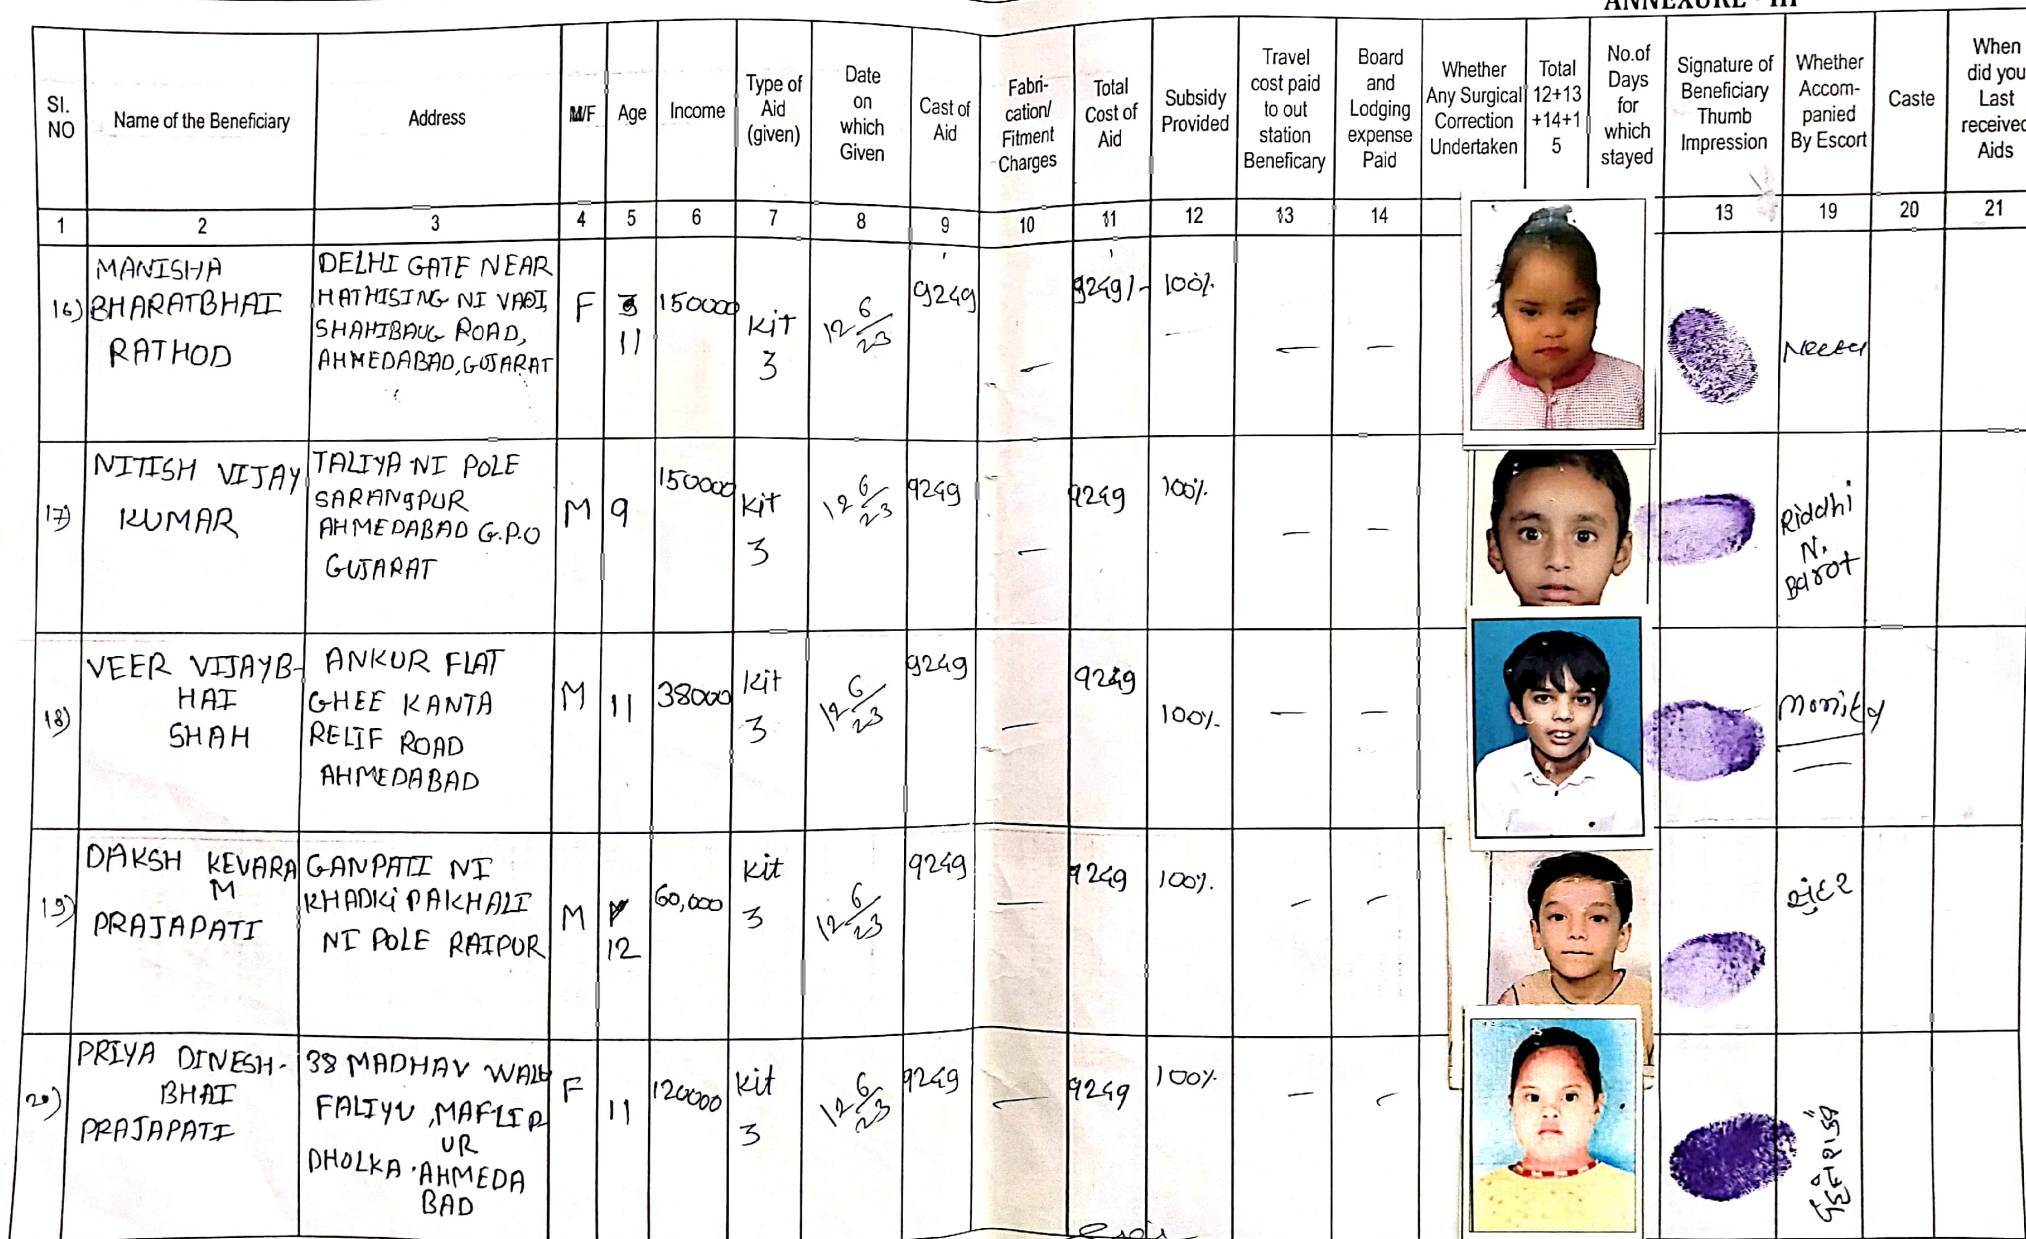 ANNEXURE - III
Sl. NO
Name of the Beneficiary
Address
M/F
Age
Income
Type of Aid (given)
Date on which Given
Cast of Aid
Fabri-cation/ Fitment Charges
Total Cost of Aid
Subsidy Provided
Travel cost paid to out station Beneficary
Board and Lodging expense Paid
Whether Any Surgical Correction Undertaken
Total 12+13 +14+1 5
No.of Days for which stayed
Signature of Beneficiary Thumb Impression
Whether Accom-panied By Escort
Caste
When did you Last received Aids
1 2 3 4 5 6 7 8 9 10 11 12 13 14 13 19 20 21
16)
MANISHA
BHARATBHAI
RATHOD
DELHI GATE NEAR
HATHISING NI VADI,
SHAHIBAUG ROAD,
AHMEDABAD, GUJARAT
F
11
150000
Kit
3
12 6/23
9249
9249/-
100%
17)
NITISH VIJAY
KUMAR
TALIYA NI POLE
SARANGPUR
AHMEDABAD G.P.O
GUJARAT
M
9
150000
Kit
3
12 6/23
9249
9249
100%
Riddhi
N.
Barot
18)
VEER VIJAYB-
HAI
SHAH
ANKUR FLAT
GHEE KANTA
RELIF ROAD
AHMEDABAD
M
11
38000
Kit
3
12 6/23
9249
9249
100%
19)
DAKSH KEVARA
M
PRAJAPATI
GANPATI NI
KHADKI PAKHALI
NI POLE RAIPUR
M
12
60,000
Kit
3
12 6/23
9249
9249
100%
સુંદર
20)
PRIYA DINESH-
BHAI
PRAJAPATI
38 MADHAV WALU
FALIYU, MAFLIP
UR
DHOLKA. AHMEDA
BAD
F
11
120000
Kit
3
12 6/23
9249
9249
100%